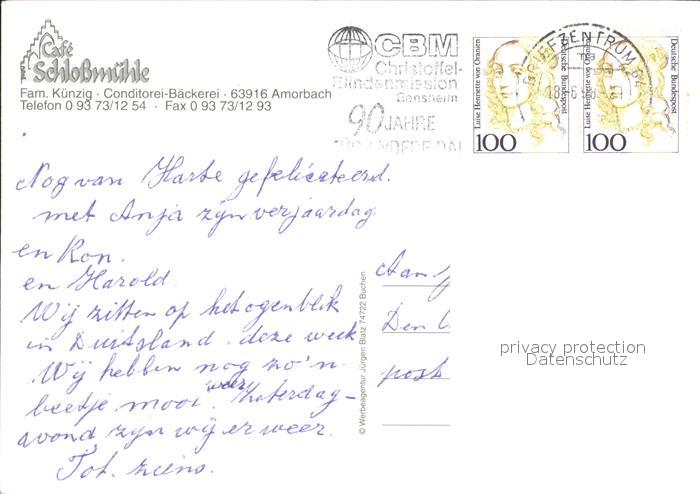 Café
Schloßmühle
Fam. Künzig · Conditorei-Bäckerei · 63916 Amorbach
Telefon 0 93 73/12 54 · Fax 0 93 73/12 93
CBM
Christoffel-
Blindenmission
Bensheim
90 JAHRE
BRIEFZENTRUM
Luise Henriette von Oranien
Deutsche Bundespost
100
Luise Henriette von Oranien
Deutsche Bundespost
100
Nog van Harte gefeliciteerd.
met Anja zijn verjaardag
en Ron.
en Harold.
Wij zitten op het ogenblik
in Duitsland. deze week
Wij hebben nog zo'n
beetje mooi weer. Zaterdag-
avond zijn wij er weer.
Tot ziens.
© Werbeagentur Jürgen Blatz 74722 Buchen
Aan
Den
post
privacy protection
Datenschutz